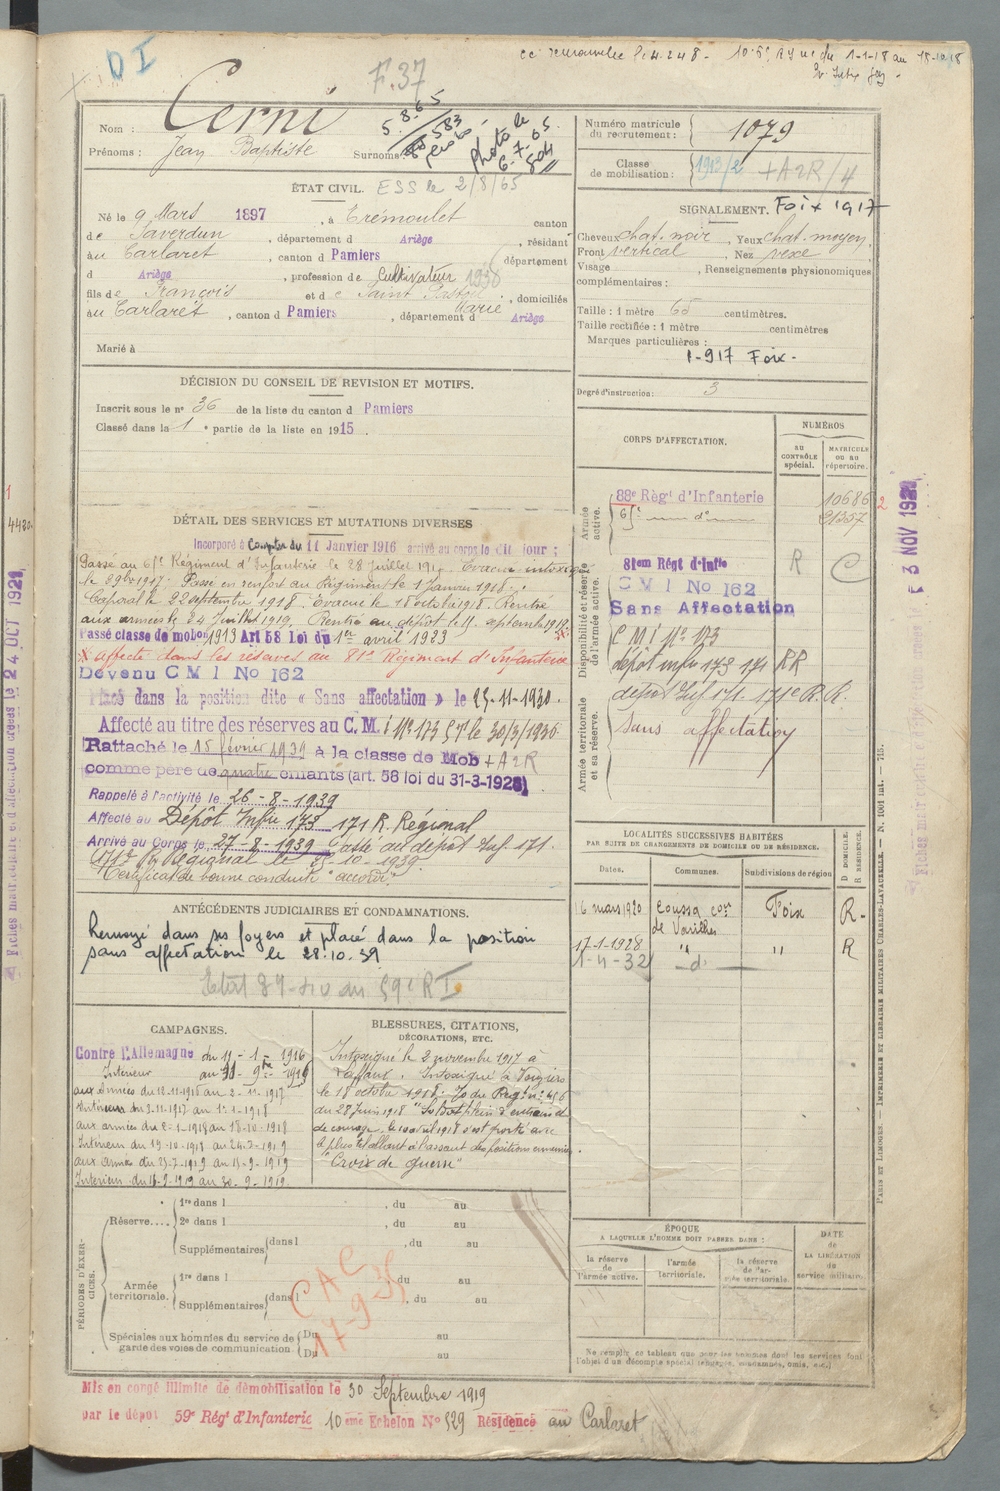 DI
F.37
Nom : Cerni
Prénoms : Jean Baptiste Surnoms :
5.8.65
583
photo le
6.7.65
504
Numéro matricule
du recrutement : 1079
Classe
de mobilisation : 1913/2 + A2R/4
ÉTAT CIVIL. ESS le 2/8/65
Né le 9 Mars 1897, à Trémoulet canton
de Saverdun, département d Ariège, résidant
au Carlaret, canton d Pamiers département
d Ariège, profession de Cultivateur 1938
fils de François et de Saint Marie, domiciliés
au Carlaret, canton d Pamiers, département d Ariège
Marié à
SIGNALEMENT. Foix 1917
Cheveux chat. noir, Yeux chat. moyen.
Front vertical, Nez vexe
Visage, Renseignements physionomiques
complémentaires :
Taille : 1 mètre 65 centimètres.
Taille rectifiée : 1 mètre centimètres
Marques particulières :
1-917 Foix-
Degré d'instruction : 3
DÉCISION DU CONSEIL DE REVISION ET MOTIFS.
Inscrit sous le n° 36 de la liste du canton d Pamiers
Classé dans la 1e partie de la liste en 1915.
DÉTAIL DES SERVICES ET MUTATIONS DIVERSES
Incorporé à Compter du 11 Janvier 1916 arrivé au corps le dit jour ;
Passé au 6e Régiment d'Infanterie le 28 juillet 191 Evacué intoxiqué
le 2 9bre 1917. Passé en renfort au Régiment le 1 Janvier 1918.
Caporal le 22 septembre 1918. Evacué le 18 octobre 1918. Rentré
aux armées le 24 Juillet 1919. Rentré au dépôt le septembre 1919.
Passé classe de mobon 1913 Art 58 Loi du 1er avril 1923
X affecté dans les réserves au 81e Régiment d'Infanterie
Devenu C M I No 162
Placé dans la position dite « Sans affectation » le 25-11-1930.
Affecté au titre des réserves au C. M. i N° 173 le 30/3/1936
Rattaché le 15 février 1939 à la classe de Mob + A2R
comme père de quatre enfants (art. 58 loi du 31-3-1928)
Rappelé à l'activité le 26-8-1939
Affecté au Dépôt Infie 173 171 R. Régional
Arrivé au Corps le 27-8-1939 Passé au dépôt Inf. 171.
171e R. Régional le -10-1939
Certificat de bonne conduite "accordé".
CORPS D'AFFECTATION.
NUMÉROS
AU CONTRÔLE spécial.
MATRICULE OU AU répertoire.
Armée active.
88e Régt d'Infanterie 10686
6 d°
Disponibilité et réserve de l'armée active.
81em Régt d'Infie R C
C M I No 162
Sans Affectation
C M i N° 173
dépôt Infie 173 171 RR
dépôt Inf. 171. 171e R.R.
Armée territoriale et sa réserve.
sans affectation
ANTÉCÉDENTS JUDICIAIRES ET CONDAMNATIONS.
Renvoyé dans ses foyers et placé dans la position
sans affectation le 28.10.39
du 59e RI
LOCALITÉS SUCCESSIVES HABITÉES
PAR SUITE DE CHANGEMENTS DE DOMICILE OU DE RÉSIDENCE.
Dates. Communes. Subdivisions de région D DOMICILE. R RÉSIDENCE.
16 mars 1920 Coussa con de Varilhes Foix R
17-1-1928 " " R
1-4-32 d°
CAMPAGNES.
Contre l'Allemagne du 11-1-1916
Intérieur
aux Armées du 12-11-1916 au 2-11-1917
Intérieur du 3-11-1917 au 1-1-1918
aux armées du 2-1-1918 au 18-10-1918
Intérieur du 19-10-1918 au 24-7-1919
aux armées du 25-7-1919 au 15-9-1919
Intérieur du 16-9-1919 au 30-9-1919
BLESSURES, CITATIONS,
DÉCORATIONS, ETC.
Intoxiqué le 2 novembre 1917 à
Laffaux. Intoxiqué à Vouziers
le 18 octobre 1918. O du Régt n° 456
du 28 Juin 1918 "Soldat plein d'entrain et
de courage, le 10 avril 1918 s'est porté avec
le plus bel allant à l'assaut des positions ennemies."
"Croix de guerre"
PÉRIODES D'EXERCICES.
Réserve....
1re dans l , du au
2e dans l , du au
Supplémentaires dans l , du au
Armée territoriale.
1re dans l , du au
Supplémentaires dans l , du au
Spéciales aux hommes du service de garde des voies de communication
Du au
Du au
CAC
17-9-35
ÉPOQUE
A LAQUELLE L'HOMME DOIT PASSER DANS :
la réserve de l'armée active.
l'armée territoriale.
la réserve de l'armée territoriale.
DATE de LA LIBÉRATION du service militaire.
Ne remplir ce tableau que pour les hommes dont les services font
l'objet d'un décompte spécial (engagés, condamnés, omis, etc.)
Mis en congé illimité de démobilisation le 30 Septembre 1919
par le dépôt 59e Régt d'Infanterie 10eme Echelon No 529 Résidence au Carlaret
PARIS ET LIMOGES. — IMPRIMERIE ET LIBRAIRIE MILITAIRES CHARLES-LAVAUZELLE. — N. 1001 int. — 715.